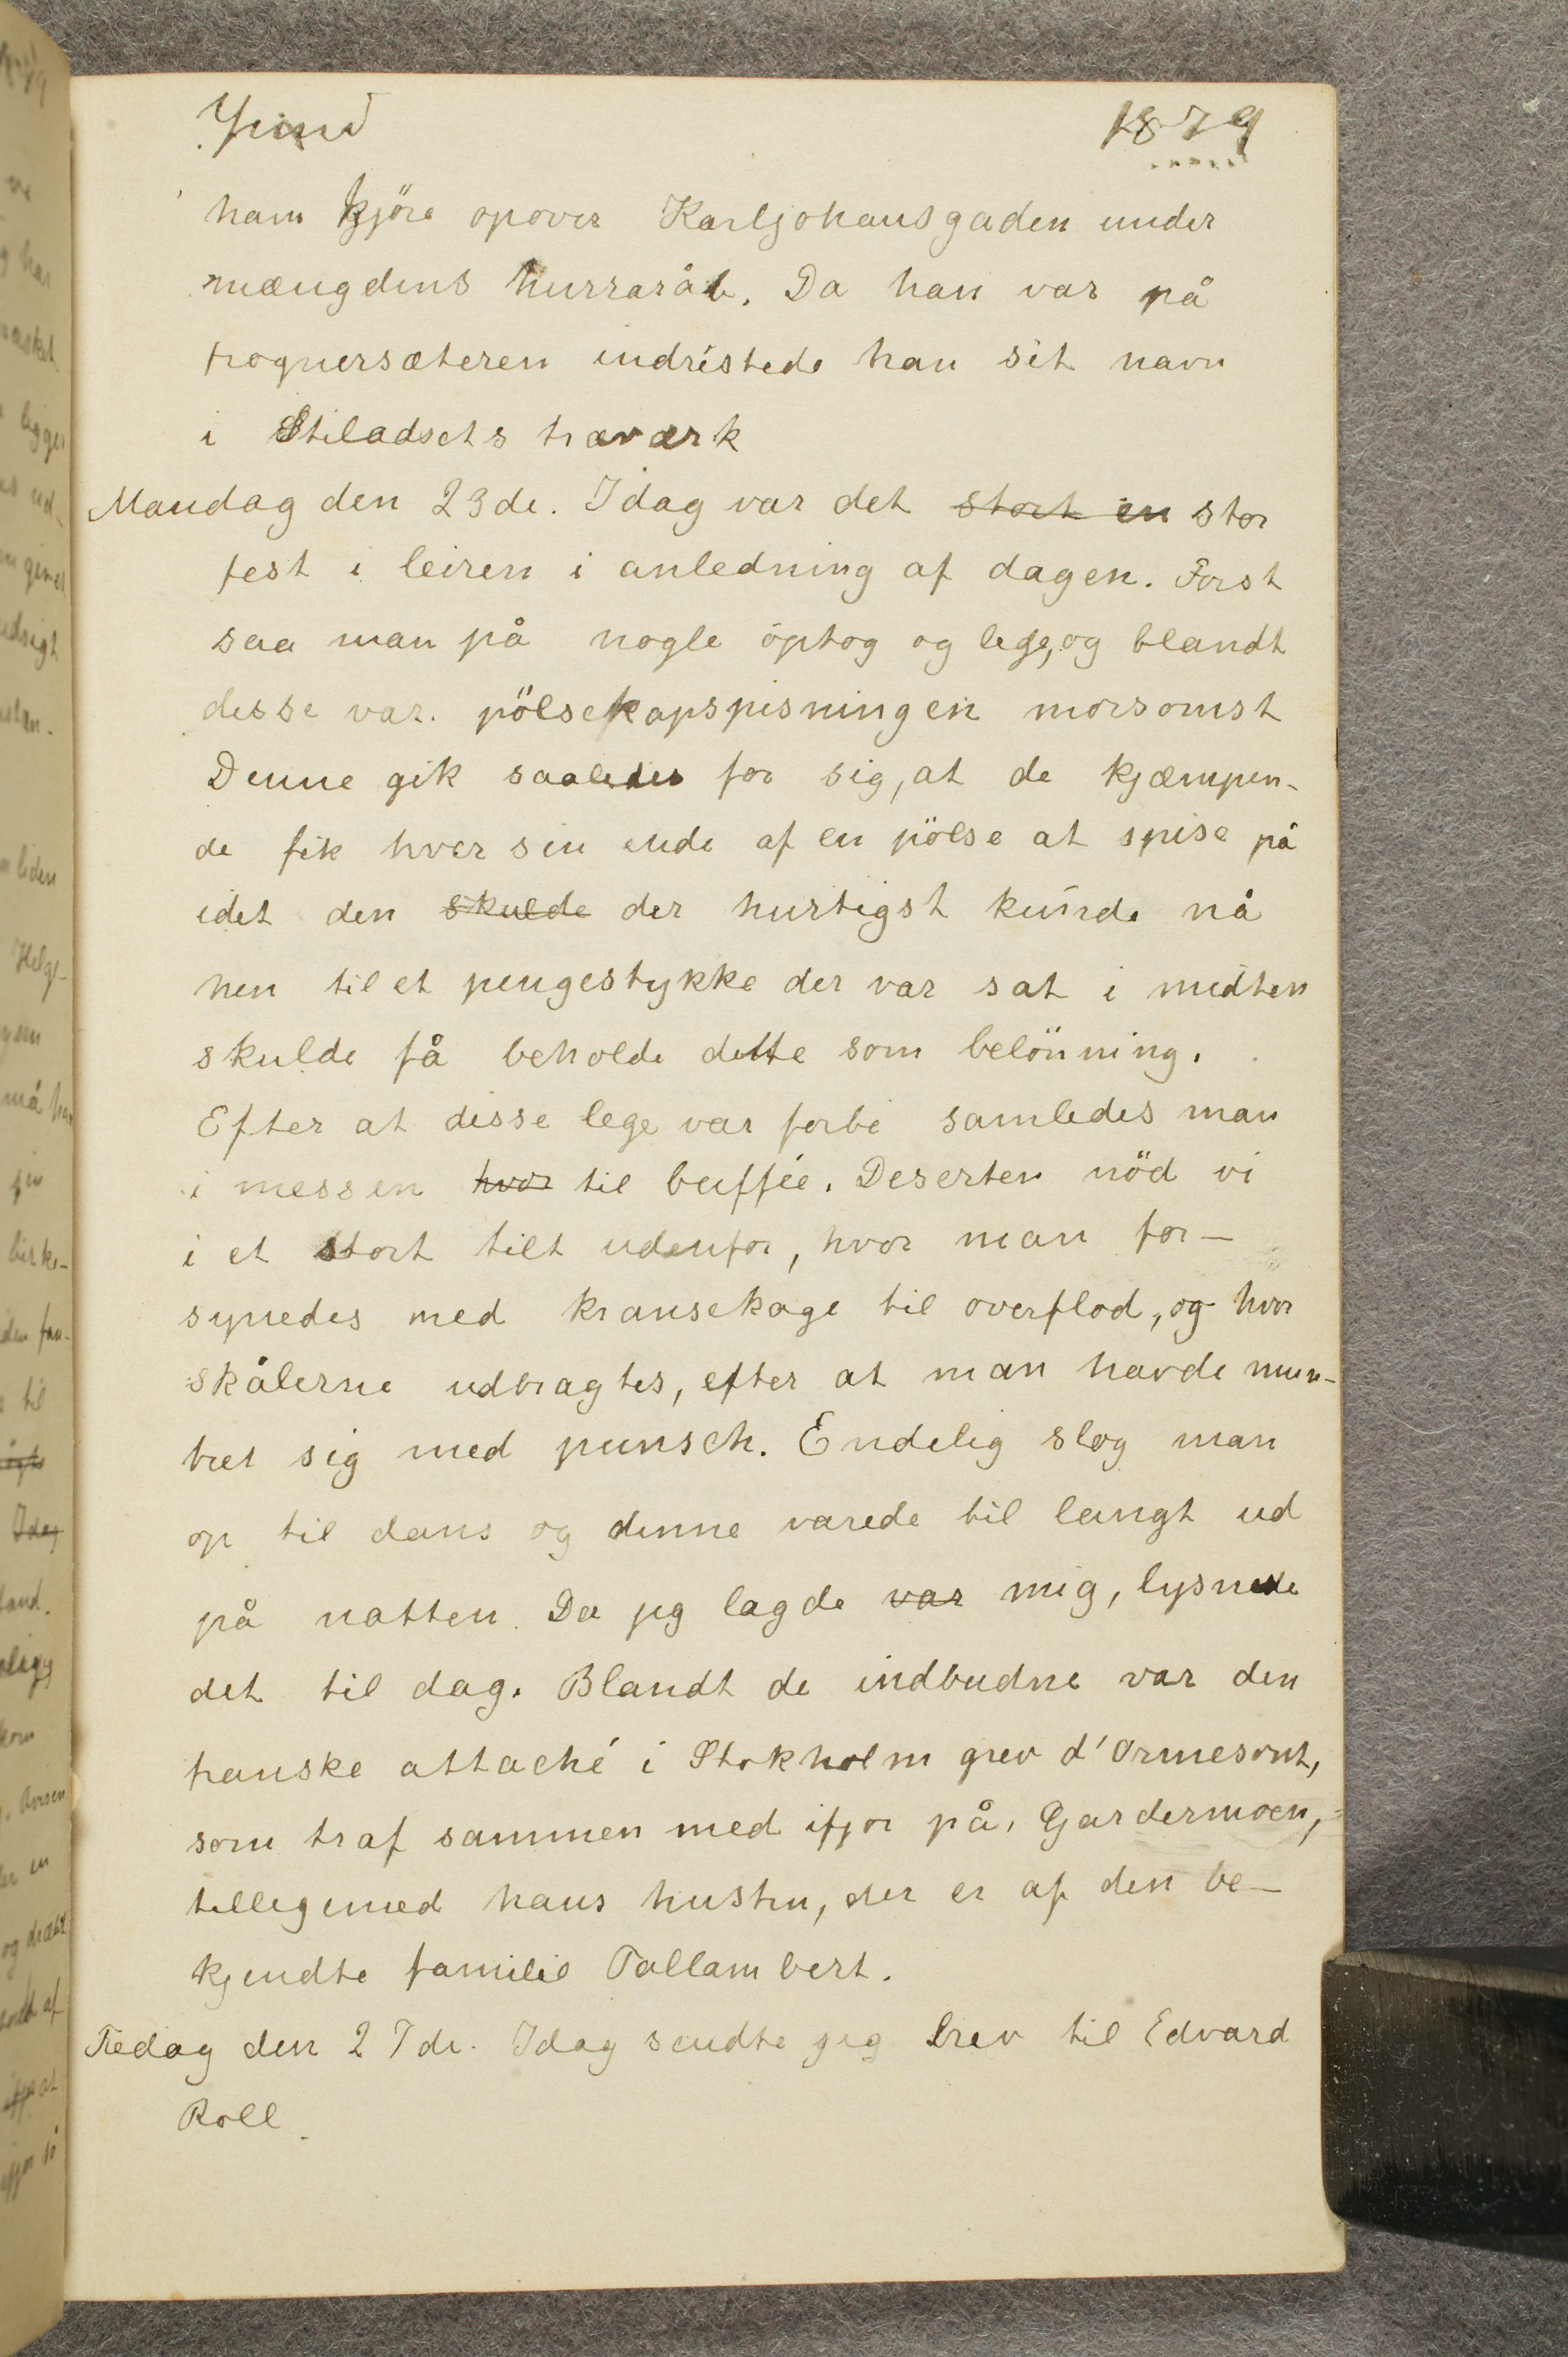 Juni 1879
ham kjöre opover Karljohansgaden under
mængdens hurraråb. Da han var på
frognersæteren indristede han sit navn
i Stiladsets træværk
Mandag den 23de. Idag var det stort en stor
fest i leiren i anledning af dagen. Først
saa man på nogle optog og lege, og blandt
desse var. pölsekapspisningen morsomst
Denne gik saaledes for sig, at de kjæmpen-
de fik hver sin ende af en pölse at spise på
idet den skulde der hurtigst kunde nå
hen til et pengestykke der var sat i midten
skulde få beholde dette som belönning.
Efter at disse lege var forbi samledes man
i messen hvor til buffée. Deserten nöd vi
i et stort tilt udenfor, hvor man for-
synedes med kransekage til overflod, og hvor
skålerne udbragtes, efter at man havde mun-
tret sig med punsch. Endelig slog man
op til dans og denne varede til langt ud
på natten. Da jeg lagde var mig, lysnede
det til dag. Blandt de indbudne var den
franske attaché i Stokholm grev d'Ormesont,
som traf sammen med ifjor på. Gardermoen,
tilligemed hans hustru, der er af den be-
kjendte familie Tallambert.
Fredag den 27de. Idag sendte jeg brev til Edvard
Roll.